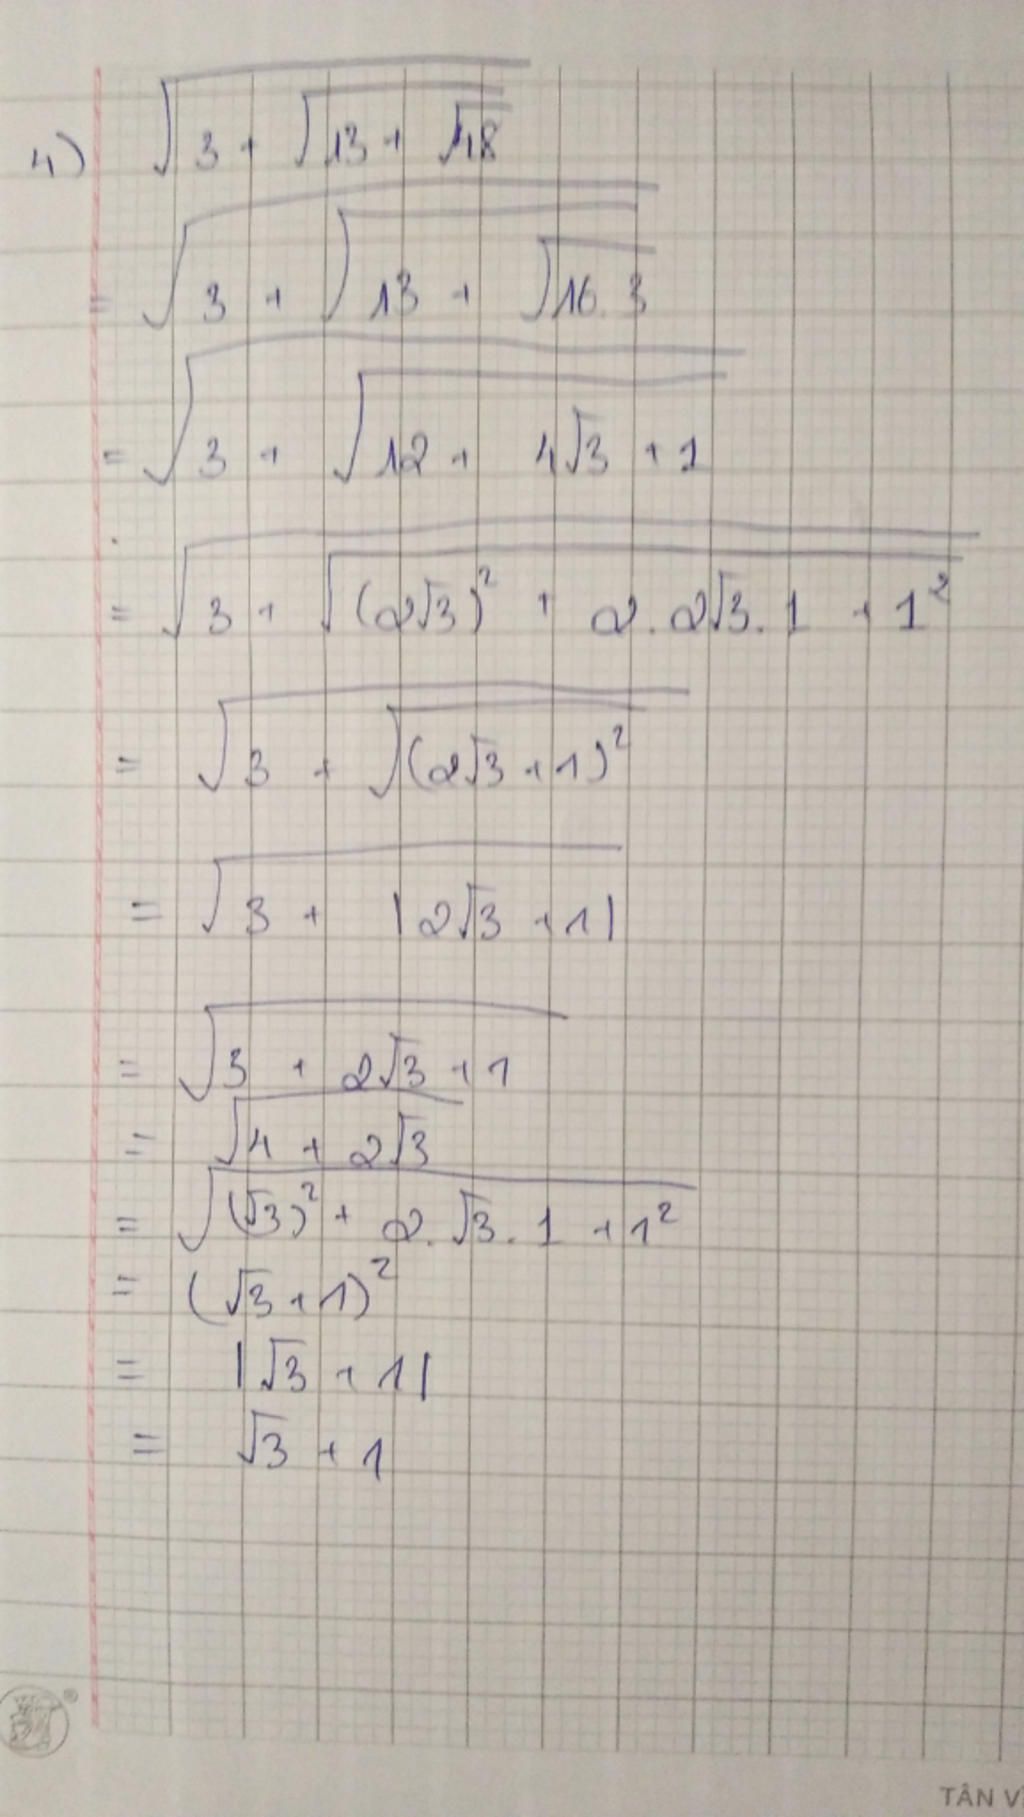 4) √(3 + √(13 + √48))
= √(3 + √(13 + √(16.3)))
= √(3 + √(12 + 4√3 + 1))
= √(3 + √((2√3)² + 2.2√3.1 + 1²))
= √(3 + √((2√3 + 1)²))
= √(3 + |2√3 + 1|)
= √(3 + 2√3 + 1)
= √(4 + 2√3)
= √((√3)² + 2.√3.1 + 1²)
= (√3 + 1)²
= |√3 + 1|
= √3 + 1
TÂN